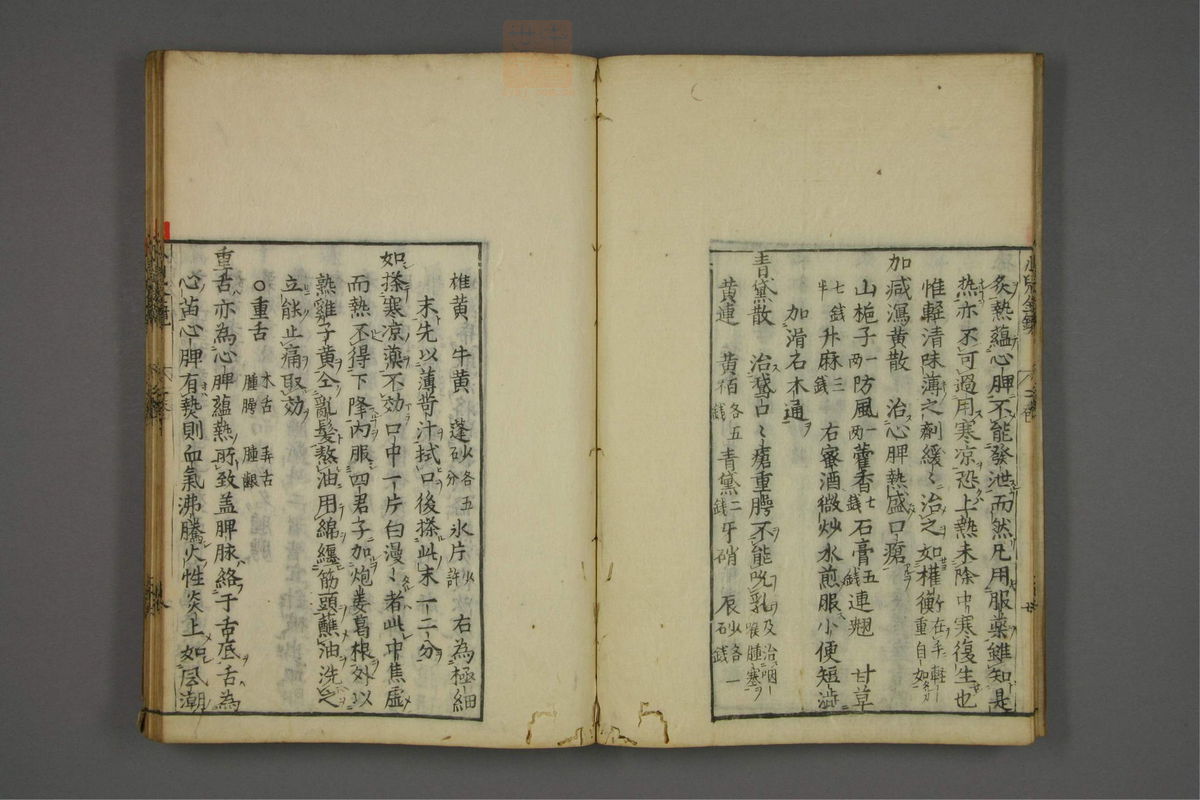 炙熱蘊心脾不能發泄而然凡用服藥雖知是
熱亦不可過用寒凉恐上熱未除中寒復生也
惟輕清味薄之劑緩〻治之如權衡在手輕重自如
加减瀉黄散 治心脾熱盛口瘡
山梔子一兩防風一兩藿香七錢石膏五錢連翹 甘草
七錢半升麻三錢 右蜜酒微炒水煎服小便短澁
加滑石木通
青黛散 治鵞口〻瘡重腭不能吮乳及治咽喉腫塞
黄連 黄栢各五錢青黛二錢牙硝 辰砂各一錢
雄黄 牛黄 蓬砂各五分氷片少許 右為極細
末先以薄苛汁拭口後搽此末一二分
如搽寒凉藥不効口中一片白漫〻者此中焦虚
而熱不得下降內服四君子加炮姜葛根外以
熟雞子黄仝亂髮熬油用綿纏筋頭蘸油洗之
立能止痛取効
○重舌 木舌 弄舌 腫腭 腫齦
重舌亦為心脾蘊熱所致盖脾脉絡于舌底舌為
心苗心脾有熱則血氣沸騰火性炎上如風潮